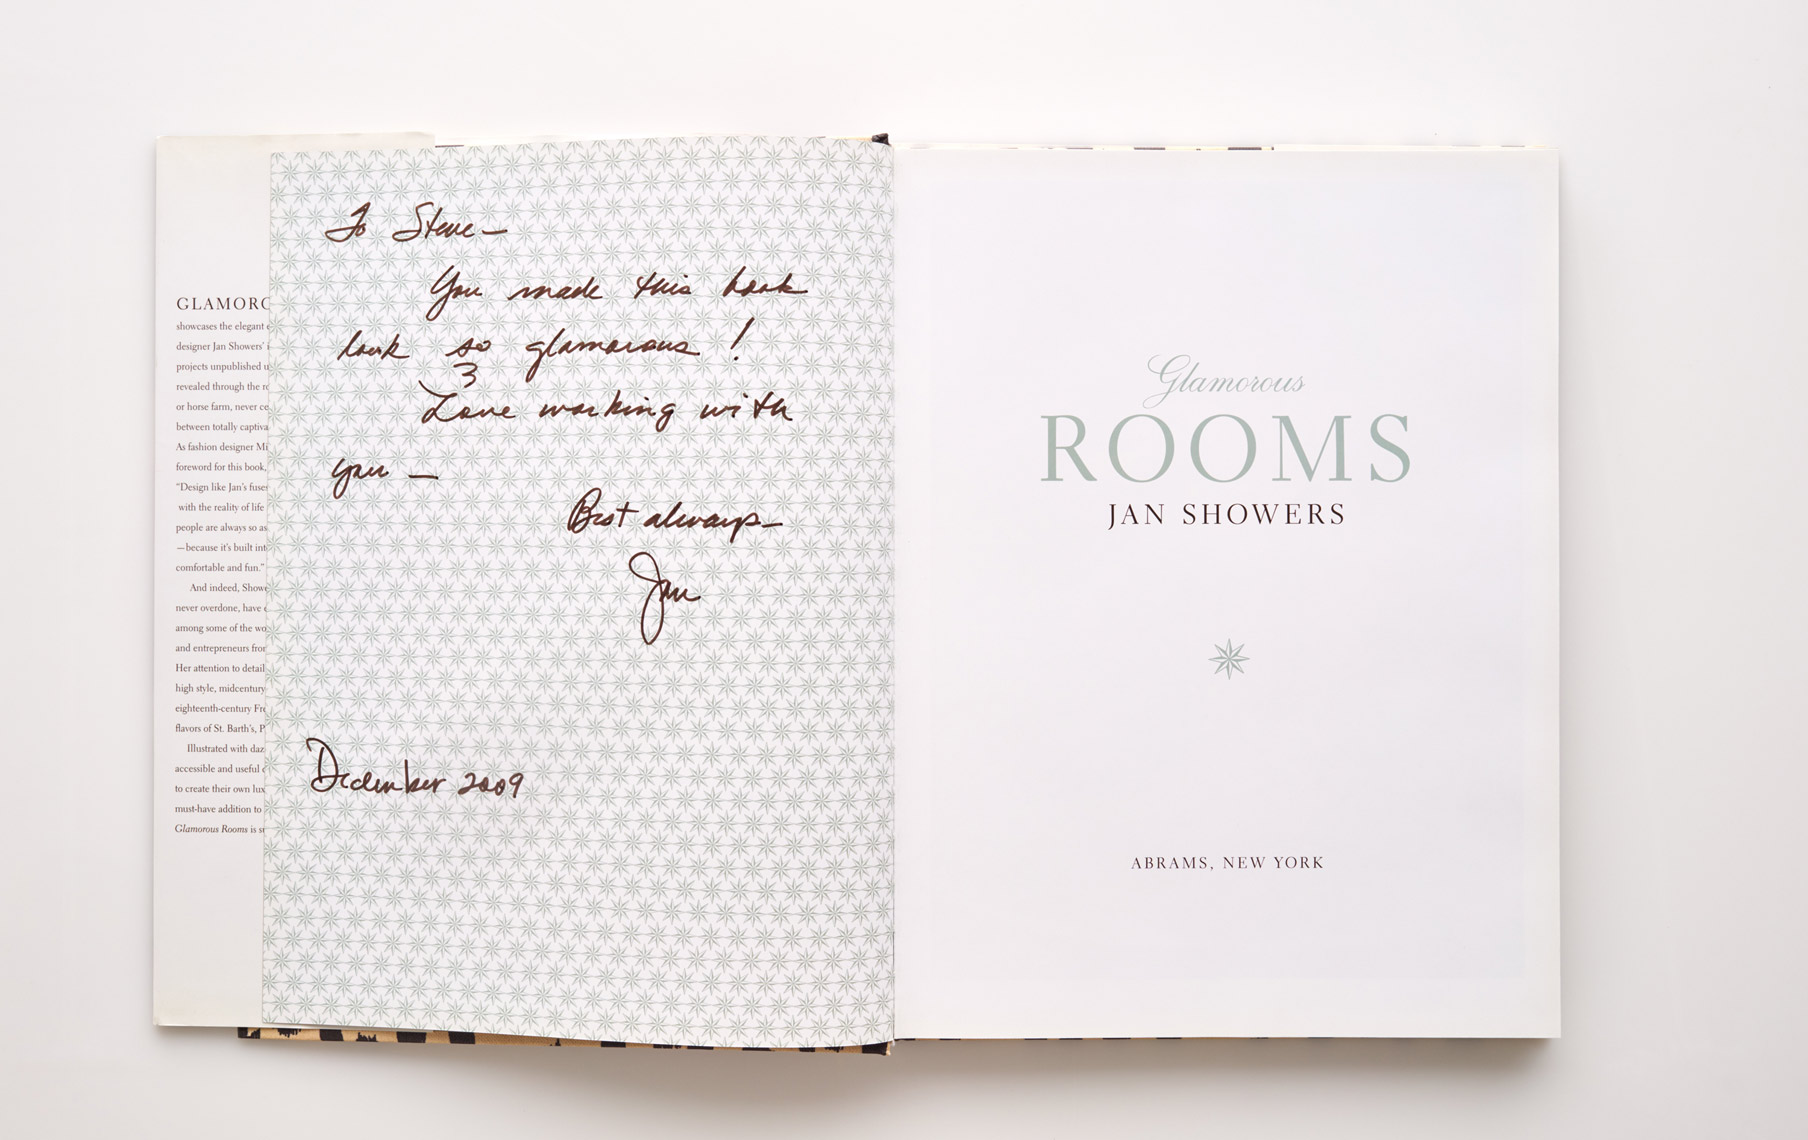 GLAMORO
showcases the elegant
designer Jan Showers'
projects unpublished
revealed through the
or horse farm, never
between totally captiva
As fashion designer Mi
foreword for this book,
“Design like Jan's fuses
with the reality of life
people are always so as
—because it's built int
comfortable and fun.”
And indeed, Showe
never overdone, have
among some of the wo
and entrepreneurs from
Her attention to detail
high style, midcentury
eighteenth-century Fre
flavors of St. Barth's, P
Illustrated with daz
accessible and useful
to create their own lux
must-have addition to
Glamorous Rooms is
To Steve —
You made this book
look so glamorous!
Love working with
you —
Best always —
Jan
December 2009
Glamorous
ROOMS
JAN SHOWERS
ABRAMS, NEW YORK